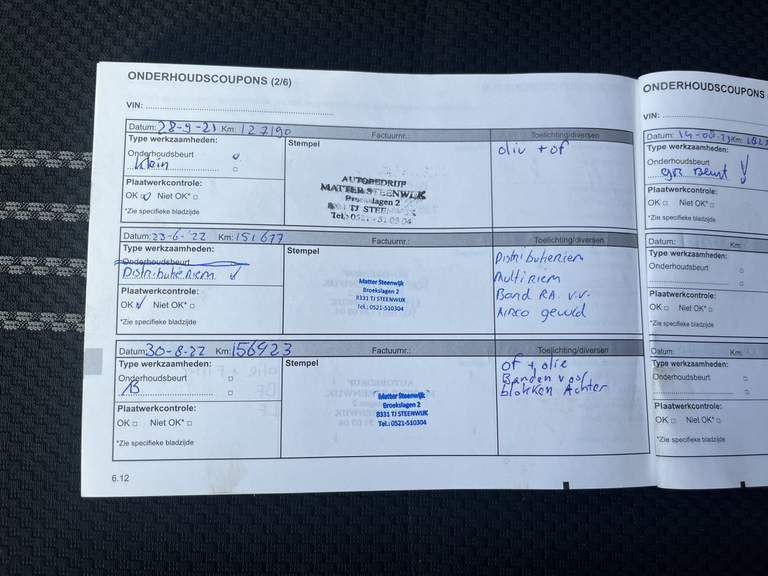 ONDERHOUDSCOUPONS (2/6)
VIN:
Datum: 28-9-21 Km: 127190 Factuurnr.: Toelichting/diversen
Type werkzaamheden: Stempel
Onderhoudsbeurt
Klein
oliv + of
Plaatwerkcontrole:
OK Niet OK*
*Zie specifieke bladzijde
AUTOBEDRIJF
MATTER STEENWIJK
Broekslagen 2
8331 TJ STEENWIJK
Tel.: 0521 - 51 03 04
Datum: 23-6-'22 Km: 151677 Factuurnr.: Toelichting/diversen
Type werkzaamheden: Stempel
Onderhoudsbeurt
Distributieriem
Distributieriem
Multiriem
Band RA. V.V.
Airco gevuld
Plaatwerkcontrole:
OK Niet OK*
*Zie specifieke bladzijde
Matter Steenwijk
Broekslagen 2
8331 TJ STEENWIJK
Tel.: 0521-510304
Datum: 30-8-22 Km: 156923 Factuurnr.: Toelichting/diversen
Type werkzaamheden: Stempel
Onderhoudsbeurt
of + olie
Banden voor
blokken Achter
Plaatwerkcontrole:
OK Niet OK*
*Zie specifieke bladzijde
Matter Steenwijk
Broekslagen 2
8331 TJ STEENWIJK
Tel.: 0521-510304
6.12
ONDERHOUDSCOUPONS
VIN:
Datum: 14-08-23 Km:
Type werkzaamheden:
Onderhoudsbeurt
gr. Beurt
Plaatwerkcontrole:
OK Niet OK*
*Zie specifieke bladzijde
Datum: Km:
Type werkzaamheden:
Onderhoudsbeurt
Plaatwerkcontrole:
OK Niet OK*
*Zie specifieke bladzijde
Datum: Km:
Type werkzaamheden:
Onderhoudsbeurt
Plaatwerkcontrole:
OK Niet OK*
*Zie specifieke bladzijde